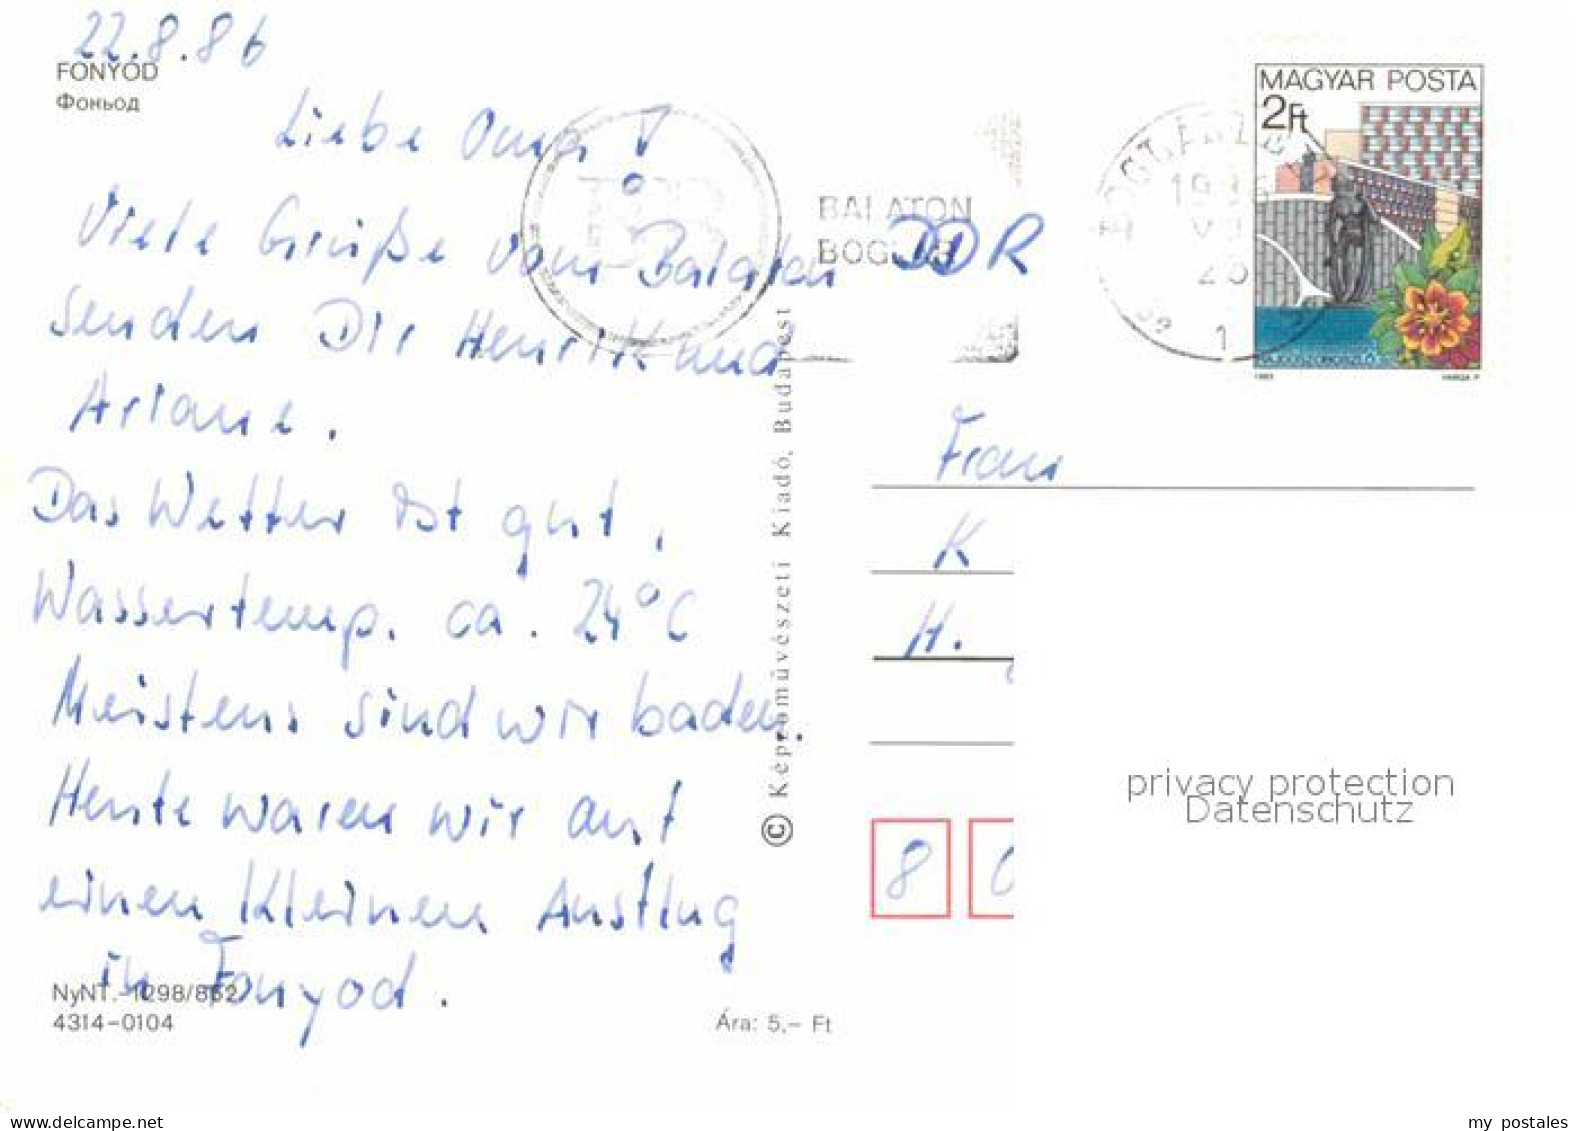 22.8.86
FONYÓD
Фоньод
Liebe Oma!
Viele Grüße vom Balaton
senden Dir Henrik und
Ariane.
Das Wetter ist gut,
Wassertemp. ca. 24°C
Meistens sind wir baden.
Heute waren wir auf
einen kleinen Ausflug
in Fonyod.
NyNT.-1298/862
4314-0104
Ára: 5,- Ft
© Képzőművészeti Kiadó, Budapest
BALATON
BOGLÁR
DDR
MAGYAR POSTA
2Ft
1983 VARGA P.
Frau
K
H.
8
privacy protection
Datenschutz
www.delcampe.net
my_postales